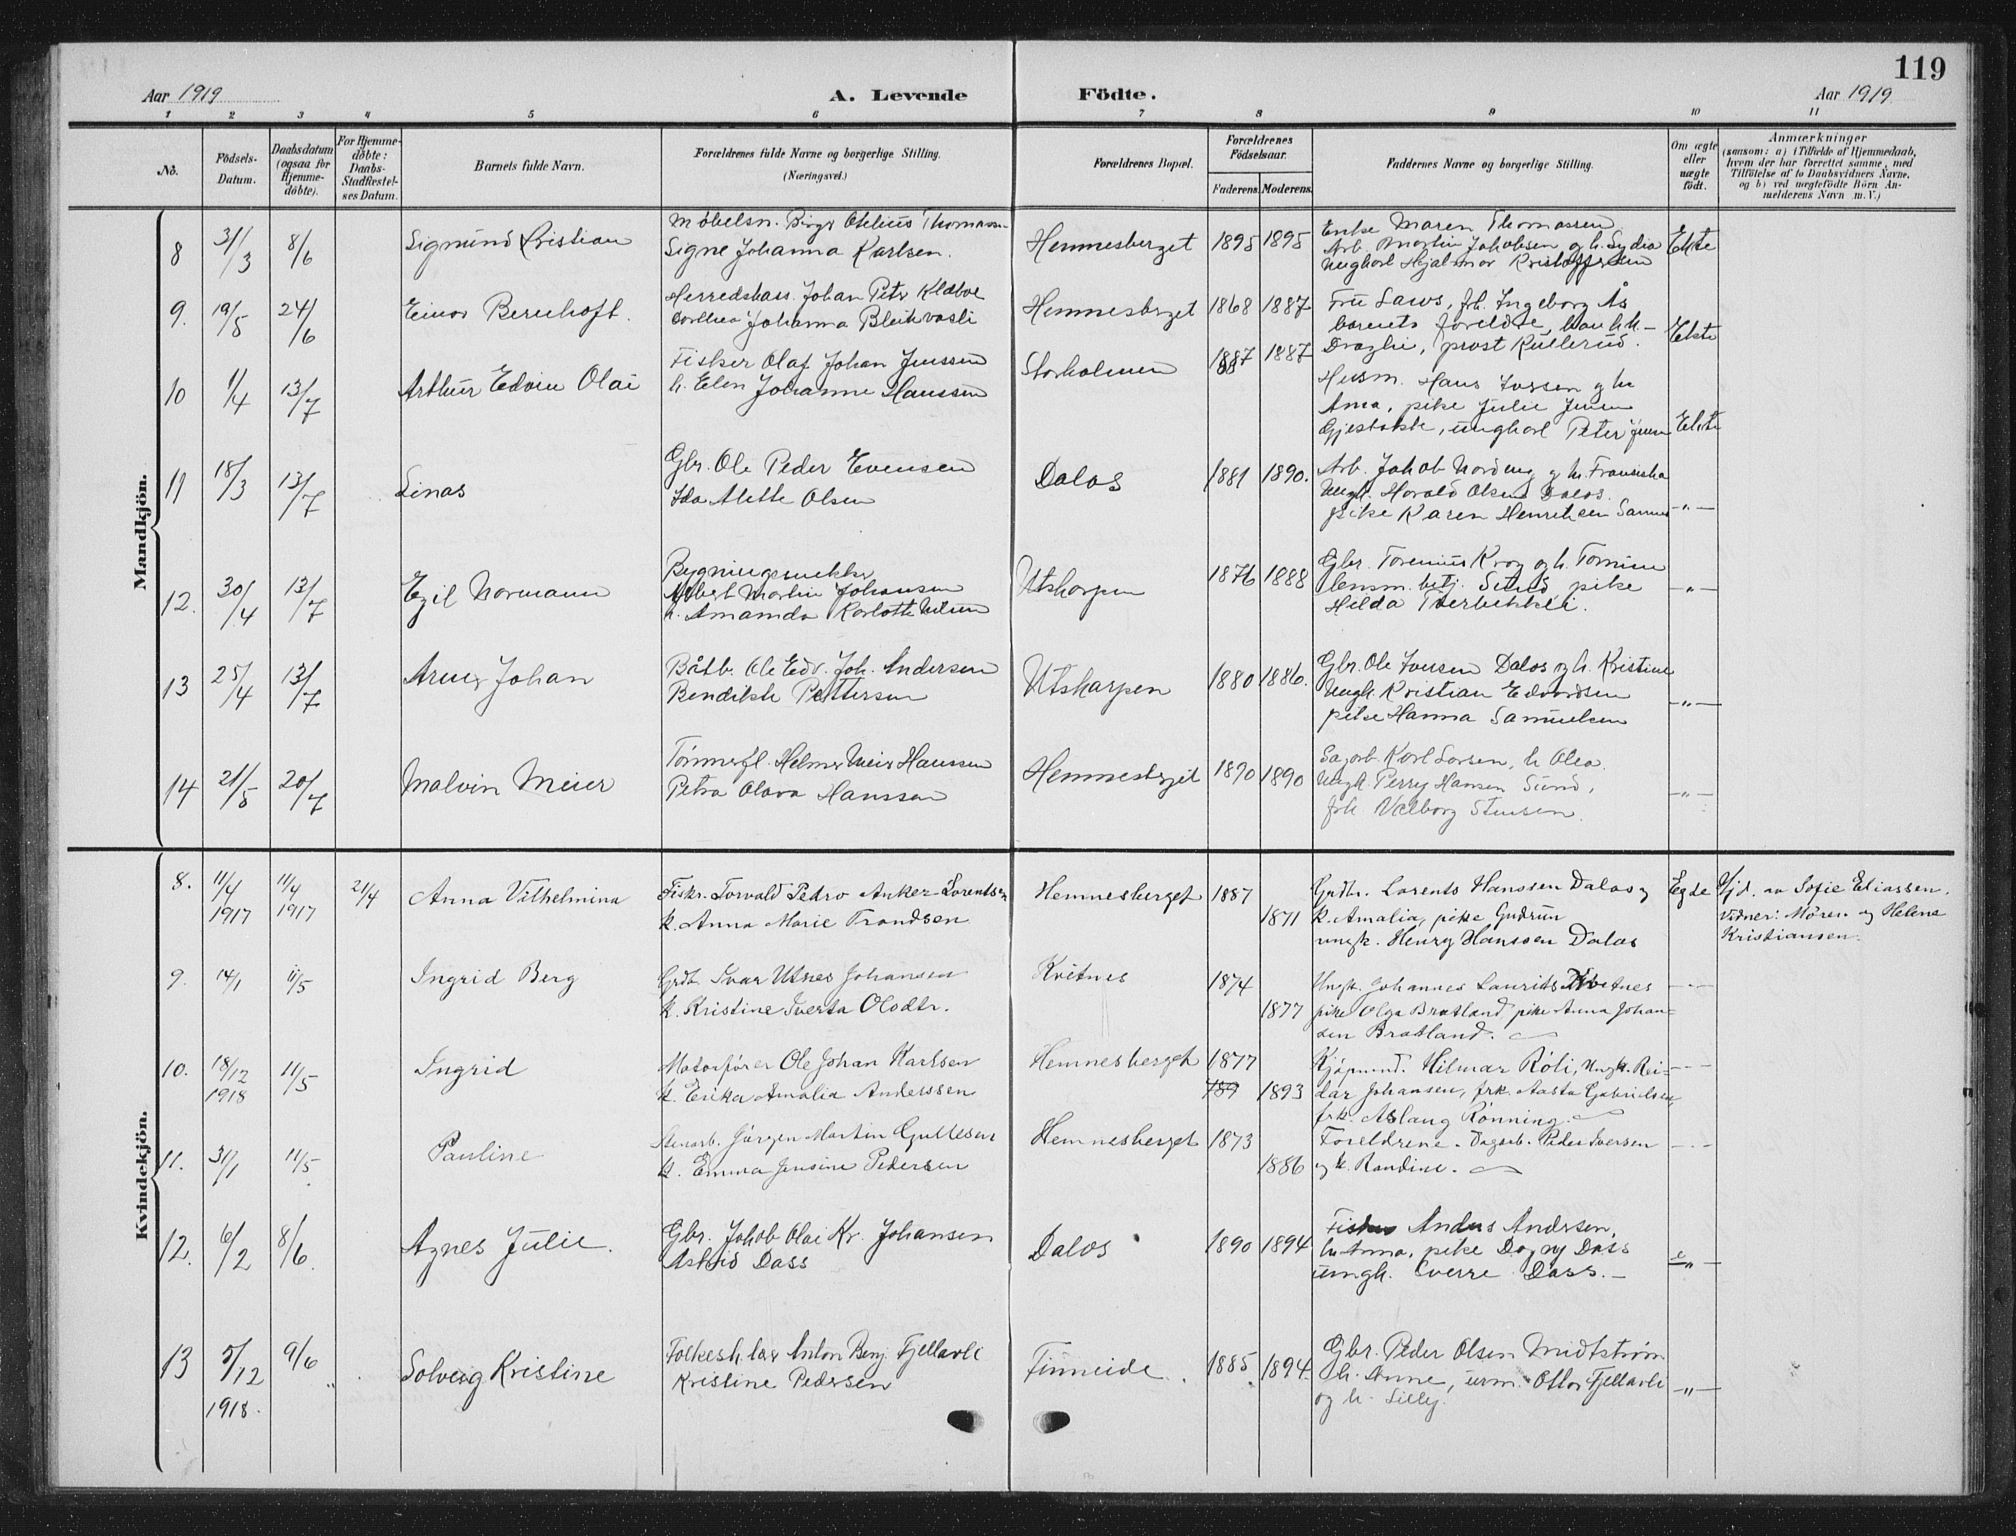 119
Aar 1919
A. Levende Födte.
Aar 1919
1 2 3 4 5 6 7 8 9 10 11
No.
Födsels-Datum.
Daabsdatum (ogsaa for Hjemmedöbte).
For Hjemmedöbte: Daabs-Stadfæstelses Datum.
Barnets fulde Navn.
Forældrenes fulde Navne og borgerlige Stilling.
(Næringsvei.)
Forældrenes Bopæl.
Forældrenes Födselsaar.
Faderens. Moderens.
Faddernes Navne og borgerlige Stilling.
Om ægte eller uægte födt.
Anmærkninger
(saasom: a) i Tilfælde af Hjemmedaab, hvem der har forrettet samme, med Tilföielse af to Daabsvidners Navne, og b) ved uægtefödte Börn Anmelderens Navn m. V.)
Mandkjön.
8 31/3 8/6 Sigmund Kristian
Møbelsn. Birger Othlius Thomassen
Signe Johanna Karlsen.
Hemnesberget 1895 1895
Enke Maren Thomassen
Arb. Martin Jakobsen og h. Lydia
Ungkarl Hjalmar Kristoffersen
Ekte
9. 19/5 24/6 Einar Bernhoft.
Herredskass. Johan Peter Klæboe
Dorthea Johanna Bleikvasli
Hemnesberget 1868 1887
Fru Laws, frk. Ingeborg Ås
barnets foreldre, bankk-
Draglie, prost Kullerud.
Ekte
10 1/4 13/7 Arthur Edvin Olai
Fisker Olaf Johan Jenssen
h. Elen Johanne Hanssen
Storholmen 1887 1887
Husm. Hans Iversen og h.
Anna, pike Julie Jensen
Gjestakk, ungkarl Peter Jensen
Ekte
11 18/3 13/7 Linas
Gbr. Ole Peder Evensen
Ida Alette Olsen
Dalos 1881 1890.
Arb. Jakob Nordeng og h. Fransiska
Ungk. Harald Olsen Dalos.
pike Karen Henriksen Sannes
-"-
12. 30/4 13/7 Egil Normann
Bygningssnekker
Albert Martin Johansen
h. Amanda Karlotte Nilsen
Utskarpen 1876 1888
Gbr. Torenius Krog og h. Tomine
lensm. betj. Sund, pike
Hilda Tverbekkli.
-"-
13 25/4 13/7 Arne Johan
Båtb. Ole Edv. Joh. Andersen
Bendikte Pettersen
Utskarpen 1880 1886.
Gbr. Ole Iversen Dalos og h. Kristine
Ungk. Kristian Edvardsen
pike Hanna Samuelsen
-"-
14 21/5 20/7 Malvin Meier
Tømmerfl. Helmer Meier Hanssen
Petra Olava Hanssen
Hemnesberget 1890 1890
Sagarb. Karl Larsen, h. Olea.
Ungk. Perry Hansen Sund,
frk Valborg Stensen.
-"-
Kvindekjön.
8. 11/4 1917 11/4 1917 21/4 Anna Vilhelmina
Fisker Torvald Pedro Anker-Lorentsen
k. Anna Marie Trondsen
Hemnesberget 1887 1871
Grdbr. Lorents Hanssen Dalos og
k. Amalia, pike Gudrun
ungk. Henry Hanssen Dalos
Egde
Hjd. av Sofie Eliassen.
Vidner: Møren og Helene
Kristiansen.
9. 14/1 11/5 Ingrid Berg
Grdb. Ivar Utnes Johansen
k. Kristine Iverta Olsdtr.
Kvitnes 1874 1877
Ungk. Johannes Laurits Kvitnes
pike Olga Bratland pike Anna Johan-
sen Bratland.
-"-
10. 18/12 1918 11/5 Ingrid
Motorfører Ole Johan Karlsen
k. Erika Amalia Anderssen
Hemnesberget 1877 189 1893
Kjøpmnd. Hilmar Røli, Ungk. Rei-
dar Johansen, frk. Aasta Gabrielsen,
frk. Aslaug Rønning.
-"-
11. 31/1 11/5 Pauline
Stenarb. Jørgen Martin Guttesen
k. Emma Jensine Pedersen
Hemnesberget 1873 1886
Foreldrene. Dagarb. Peder Iversen
og k. Randine.
-"-
12. 6/2 8/6 Agnes Julie.
Gbr. Jakob Olai Kr. Johansen
Astrid Dass
Dalos 1890 1894
Fisker Anders Andersen,
h. Anna, pike Dagny Dass
ungk. Sverre Dass.
-"-
13 5/12 1918. 9/6 Solveig Kristine
Folkesk. lær Anton Benj. Fjellavli
Kristine Pedersen
Finneide 1885 1894
Gbr. Peder Olsen Midtstrøm
h. Anne, urm. Ottar Fjellavli
og h. Lilly.
-"-